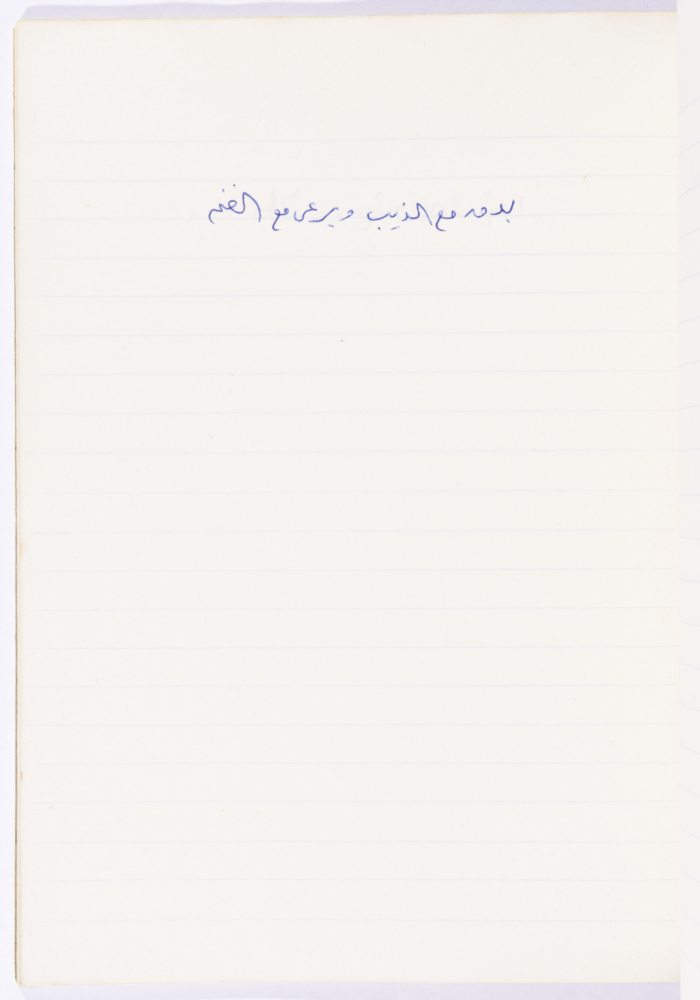 بدور مع الذيب ويرعى مع الغنم